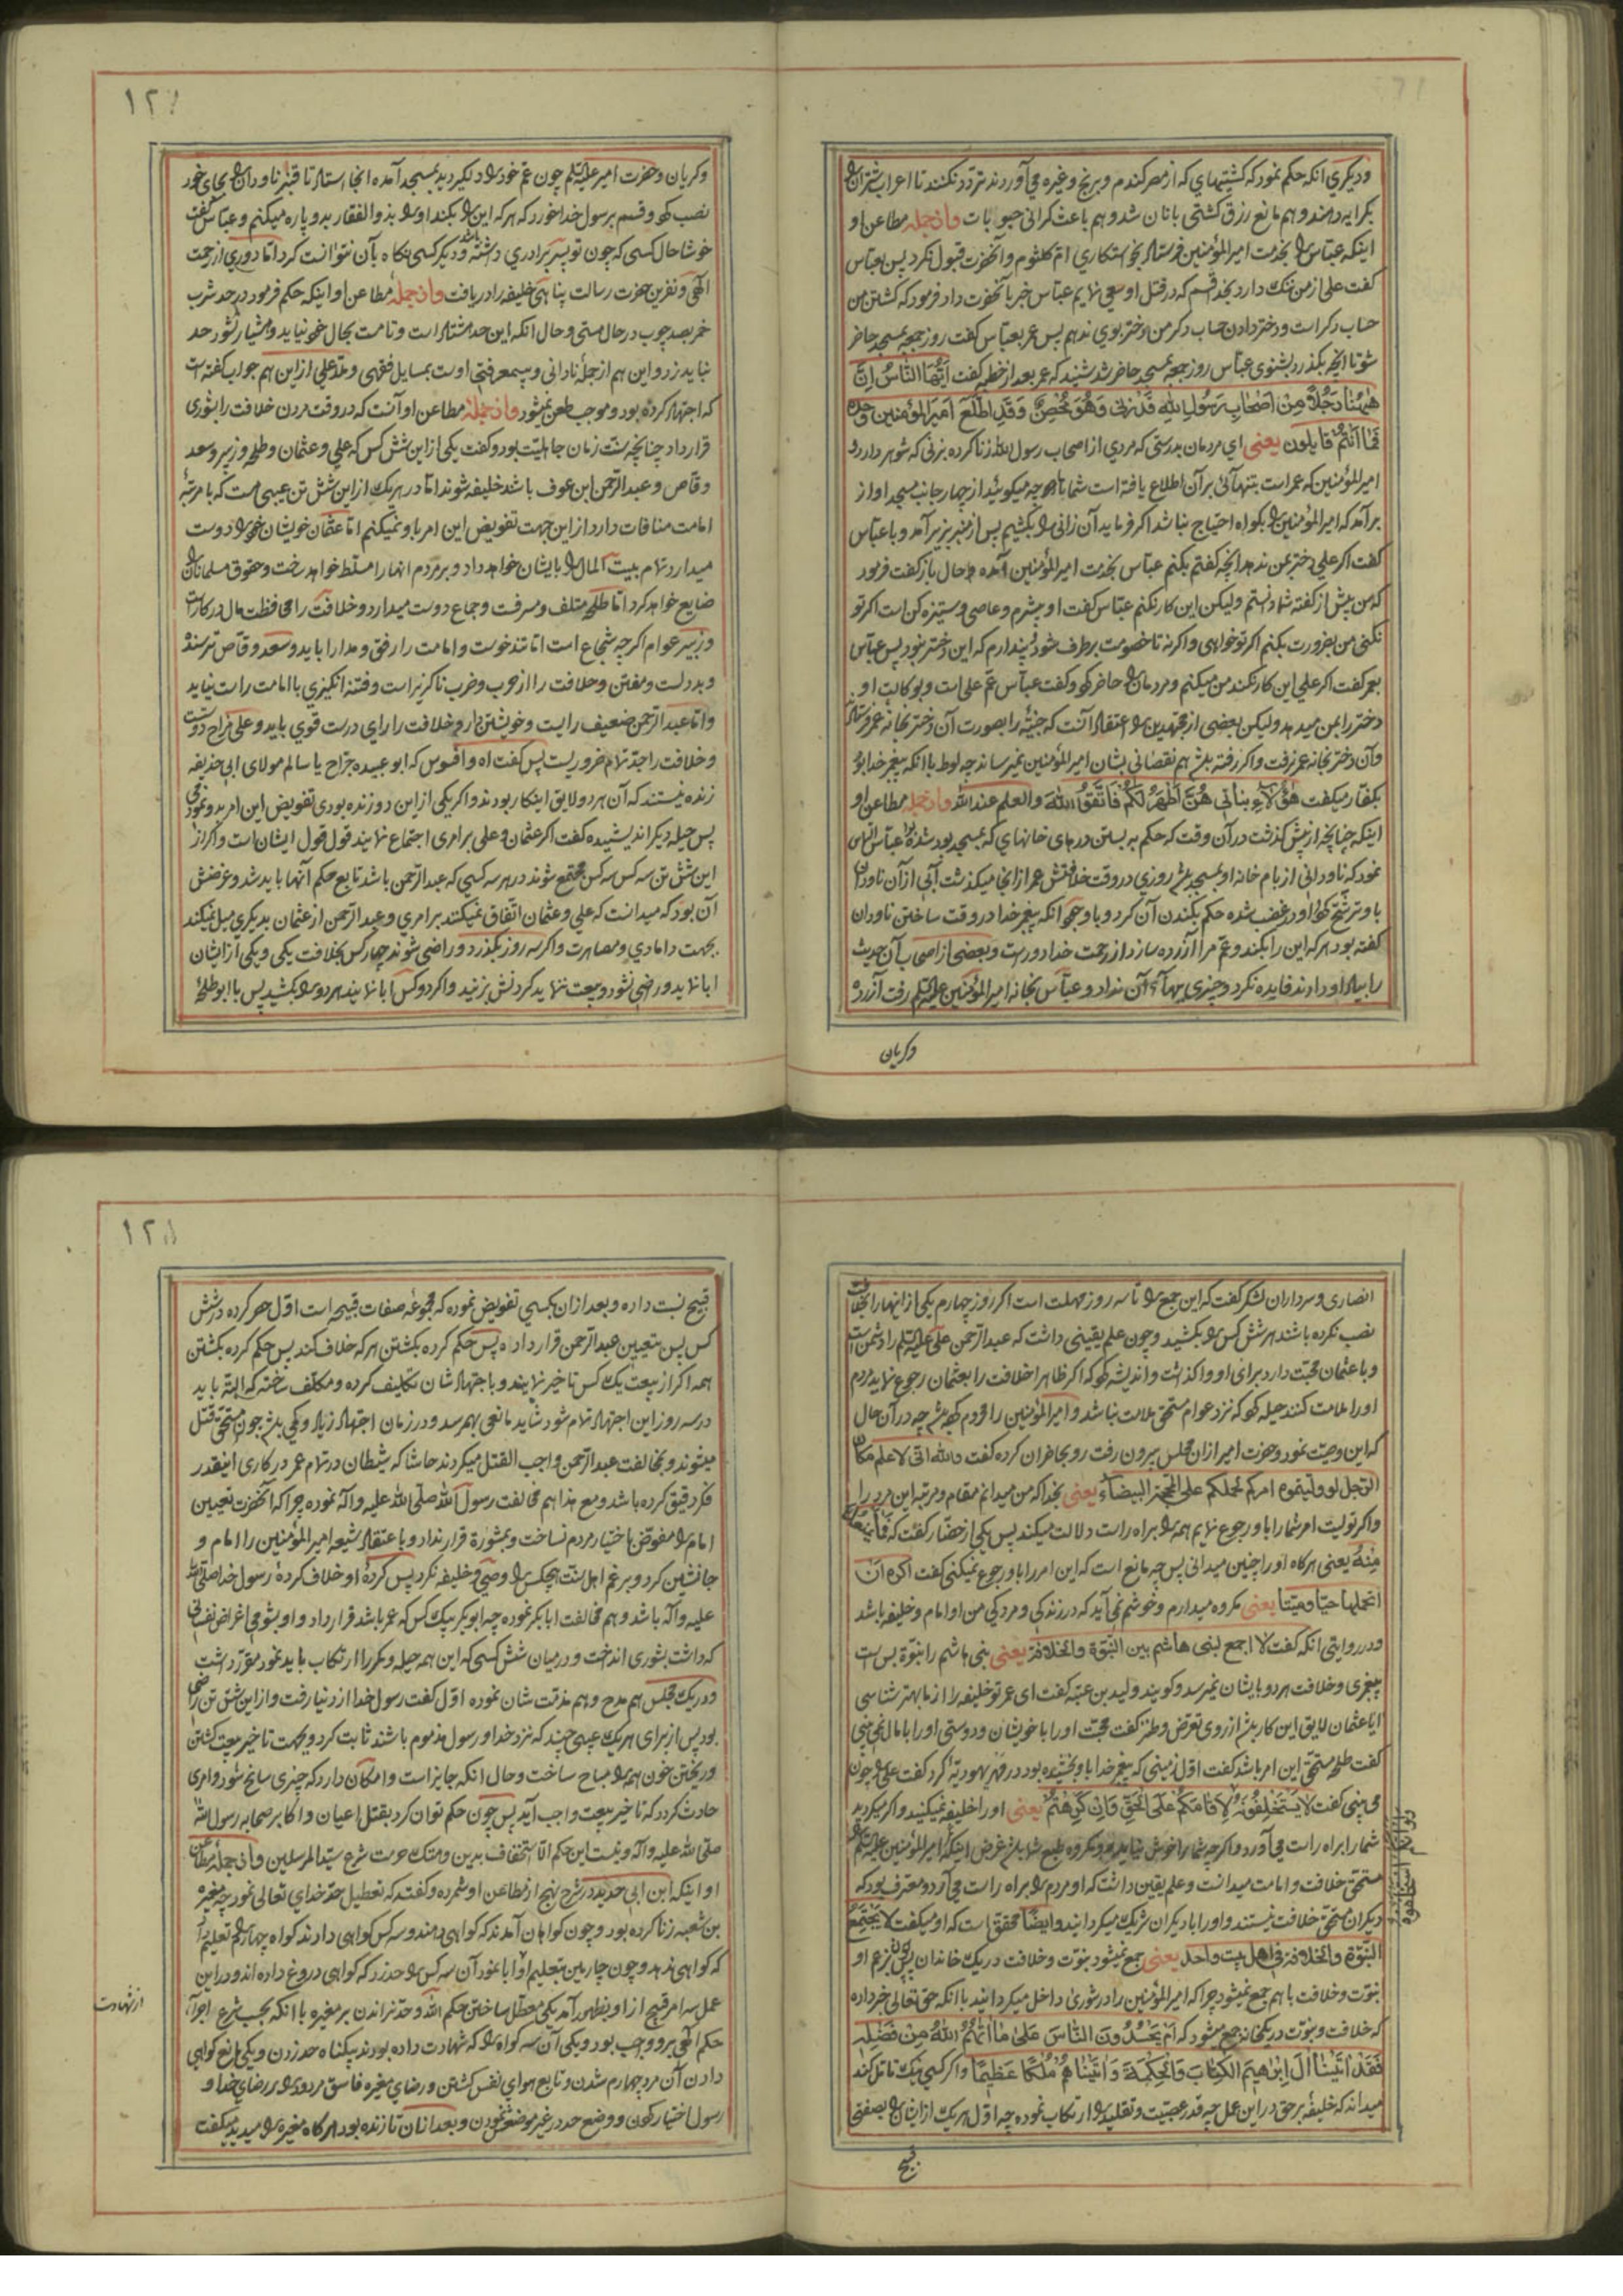 ودیگری انکه حکم نمود که کشتیهای که از مصر کندم و برنج و غیره می آوردند تردد نکنند تا اعراب شتران را
بکرایه دهند و هم مانع رزق کشتی بانان شد و هم باعث کرانی حبوبات واز جمله مطاعن او
اینکه عباس را بخدمت امیرالمؤمنین فرستاد بخواستکاری ام کلثوم و آنحضرت قبول نکرد پس بعباس
کفت علی از من ننک دارد بخدا قسم که در قتل او سعی نمایم عباس خبر بآنحضرت داد فرمود که کشتن من
حساب دکر است و دختر دادن حساب دکر من دختر بوی ندهم پس عمر بعباس کفت روز جمعه بمسجد حاضر
شو تا انچه بکذرد بشنوی عباس روز جمعه بمسجد حاضر شد شنید که عمر بعد از خطبه کفت اَیُّهَا النَّاسُ اِنَّ
هٰهُنا رَجُلاً مِنْ اَصْحابِ رَسُولِ اللهِ قَدْ زَنٰی وَهُوَ مُحْصَنٌ وَقَدِ اطَّلَعَ اَمیرُ المؤمنین وحده
فَمٰا اَنْتُمْ قایلون یعنی ای مردمان بدرستی که مردی از اصحاب رسول الله زنا کرده بزنی که شوهر دارد و
امیر المؤمنین که عمر است بتنهائی بر آن اطلاع یافته است شما چه میکوئید از چهار جانب مسجد اواز
برآمد که امیر المؤمنین را بکواه احتیاج نباشد اکر فرماید آن زانی را بکشیم پس از منبر بزیر آمد و با عباس
کفت اکر علی دختر بمن ندهد انچه کفتم بکنم عباس بخدمت امیر المؤمنین آمده حال باز کفت فرمود
که من پیش از کفته شما دانستم ولیکن این کار نکنم عباس کفت او بیشرم و عاصی و ستیزه کن است اکر تو
نکنی من بضرورت بکنم اکر تو خواهی و اکر نه تا خصومت برطرف شود پندارم که این دختر نبود پس عباس
بعمر کفت اکر علی این کار نکند من میکنم و مردمان را حاضر کرد و کفت عباس عم علی است و بوکالت او
دختر را بمن میدهد ولیکن بعضی از مجتهدین را اعتقاد آنست که جنیّه را بصورت آن دختر بخانه عمر فرستاد
و آن دختر بخانه عمر نرفت و اکر رفته باشد هم نقصانی بشان امیر المؤمنین نمیرساند چه لوط با انکه پیغمبر خدا بود
بکفار میکفت هٰؤُلاٰءِ بناتی هُنَّ اَطْهَرُ لَکُمْ فَاتَّقُوا اللهَ والعلم عند الله واز جمله مطاعن او
اینکه چنانچه از پیش کذشت در آن وقت که حکم به بستن درهای خانهای که بمسجد بود شده بود عباس التماس
نمود که ناودانی از بام خانه او بمسجد باشد روزی در وقت خلافتش عمر از انجا میکذشت آبی از آن ناودان
باو ترشح کرد او در غضب شده حکم بکندن آن کرد و با وجود انکه پیغمبر خدا در وقت ساختن ناودان
کفته بود هر که این را بکند و عم مرا آزرده سازد از رحمت خدا دور است و بعضی از اصحاب آن حدیث
را بیاد او دادند فایده نکرد و چیزی بهای آن نداد و عباس بخانه امیر المؤمنین علیه السلم رفت آزرده
وکریان
۱۲
وکریان و حضرت امیر علیه السلم چون عم خود را دلکیر دید بمسجد آمده انجا استاد تا قنبر ناودان را بجای خود
نصب کرد و قسم برسول خدا خورد که هر که این را بکند او را بذوالفقار بدو پاره میکنم و عباس کفت
خوشا حال کسی که چون تو پسر برادری داشته باشد و دیگر کسی نکاه بآن نتوانست کرد اما دوری از رحمت
آلهی و نفرین حضرت رسالت پناهی خلیفه را دریافت واز جمله مطاعن او اینکه حکم فرمود در حد شرب
خمر بصد چوب در حال مستی و حال انکه این حد هشتاد است و تا مست بحال خود نیاید و هشیار نشود حد
نباید زد و این هم از جملۀ نادانی و بیمعرفتی اوست بمسایل فقهی و ملا علی از این هم جواب کفته است
که اجتهاد کرده بود و موجب طعن نمیشود واز جمله مطاعن او آنست که در وقت مردن خلافت را بشوری
قرار داد چنانچه سنت زمان جاهلیت بود و کفت یکی از این شش کس که علی و عثمان و طلحه و زبیر و سعد
وقاص و عبدالرحمن ابن عوف باشد خلیفه شوند اما در هر یک از این شش تن عیبی هست که با مرتبۀ
امامت منافات دارد از این جهت تفویض این امر باو نمیکنم اما عثمان خویشان خود را دوست
میدارد تمام بیت المال را بایشان خواهد داد و بر مردم انها را مسلط خواهد ساخت و حقوق مسلمانان را
ضایع خواهد کرد اما طلحه متلف و مسرفست و جماع دوست میدارد و خلافت را محافظت مال در کار است
و زبیر عوام اکر چه شجاع است اما تندخوست و امامت را رفق و مدارا باید و سعد وقاص ترسنده
و بد دلست و مفتن و خلافت را از حرب و ضرب ناکزیر است و فتنه انکیزی با امامت راست نیاید
و اما عبدالرحمن ضعیف رایست و خویشتن دار و خلافت را رای درست قوی باید و علی مزاح دوست
و خلافت را جد تمام ضروریست پس کفت اه وافسوس که ابو عبیده جراح یا سالم مولای ابی حذیفه
زنده نیستند که آن هر دو لایق اینکار بودند و اکر یکی از این دو زنده بودی تفویض این امر بدو نمودمی
پس حیله دیگر اندیشیده کفت اکر عثمان و علی بر امری اجتماع نمایند قول قول ایشان است و اکر از
این شش تن سه کس سه کس مجتمع شوند در هر سه کسی که عبدالرحمن باشد تابع حکم آنها باید شد و غرضش
آن بود که میدانست که علی و عثمان اتفاق نمیکنند بر امری و عبدالرحمن از عثمان بدیکری میل نمیکند
بجهت دامادی و مصاهرت و اکر سه روز بکذرد و راضی شوند چهار کس بخلافت یکی و یکی از ایشان
ابا نماید و راضی نشود و بیعت ننماید کردنش بزنید و اکر دو کس ابا نمایند هر دو را بکشید پس با ابو طلحۀ
انصاری و سرداران لشکر کفت که این جمع را تا سه روز مهلت است اکر روز چهارم یکی از اینها را بخلافت
نصب نکرده باشند هر شش کس را بکشید و چون علم یقینی داشت که عبدالرحمن علی علیه السلم را دشمن است
و با عثمان محبت دارد برای او واکذاشت و اندیشه کرد که اکر ظاهرا خلافت را بعثمان رجوع نماید مردم
او را ملامت کنند حیله کرد که نزد عوام مستحق ملامت نباشد و امیر المؤمنین را محروم کرده باشد چه در آن حال
که این وصیت نمود و حضرت امیر از ان مجلس بیرون رفت رو بحاضران کرده کفت والله انی لاعلم مکان
الرجل لو ولیتموه امرکم لحملکم علی المحجة البیضاء یعنی بخدا که من میدانم مقام و مرتبه این مرد را
و اکر تولیت امر شما را باو رجوع نمایم همه را براه راست دلالت میکند پس یکی از حضار کفت که فَمٰا یَمْنَعُکَ
مِنْهُ یعنی هر کاه او را چنین میدانی پس چه مانع است که این امر را باو رجوع نمیکنی کفت اکره ان
اتحملها حیّا و میّتا یعنی مکروه میدارم و خوشم نمی آید که در زندکی و مردکی من او امام و خلیفه باشد
و در روایتی انکه کفت لا اجمع لبنی هاشم بین النبوّة والخلافة یعنی بنی هاشم را نبوّة بس است
پیغمبری و خلافت هر دو بایشان نمیرسد و کویند ولید بن عتبه کفت ای عمر تو خلیفه را از ما بهتر شناسی
ایا عثمان لایق این کار باشد از روی تعرض و طنز کفت محبت او را با خویشان و دوستی او را با مال نمی بینی
کفت طلحه مستحق این امر باشد کفت اول زمینی که پیغمبر خدا باو بخشیده بود در مهر یهودیّه کرد کفت علی را چون
می بینی کفت لاٰ یَسْتَخْلِفُونَهُ لَاَقٰامَکُمْ عَلَی الْحَقِّ وَاِنْ کَرِهْتُمْ یعنی او را خلیفه نمیکنید و اکر میکردید
شما را براه راست می آورد و اکر چه شما را خوش نیاید و مکروه طبع شما باشد غرض اینکه امیر المؤمنین علیه السلم را
مستحق خلافت و امامت میدانست و علم یقین داشت که او مردم را براه راست می آرد و معترف بود که
دیگران مستحق خلافت نیستند و او را با دیگران شریک میکردانید و ایضا محقق است که او میکفت لاٰ یَجْتَمِعُ
النبوّة والخلافة فی اهل بیت واحد یعنی جمع نمیشود نبوّت و خلافت در یک خاندان پس بزعم او
نبوّت و خلافت با هم جمع نمیشود چرا که امیر المؤمنین را در شوری داخل میکردانید با انکه حق تعالی خبر داده
که خلافت و نبوّت در یکخانه جمع میشود که اَمْ یَحْسُدُونَ النّاسَ عَلیٰ مٰا اٰتٰیهُمُ اللهُ مِنْ فَضْلِه
فَقَدْ اٰتَیْنٰا اٰلَ اِبْرٰهیمَ الْکِتٰابَ وَالْحِکْمَةَ وَاٰتَیْنٰاهُمْ مُلْکًا عَظیمًا و اکر کسی نیک تامل کند
میداند که خلیفۀ بر حق در این عمل چه قدر عصبیت و تقلید را ارتکاب نموده چه اول هر یک از ایشان را بصفتی
قبیح
۱۲
قبیح نسبت داده و بعد از ان بکسی تفویض نموده که مجموعۀ صفات قبیحه است اول حصر کرده در شش
کس پس بتعیین عبدالرحمن قرار داده پس حکم کرده بکشتن هر که خلاف کند پس حکم کرده بکشتن
همه اکر از بیعت یک کس تاخیر نمایند و باجتهاد شان تکلیف کرده و مکلف ساخته که البته باید
در سه روز این اجتهاد تمام شود شاید مانعی بهم رسد و در زمان اجتهاد زیاد و کمی باشد چون مستحق قتل
میشوند و بمخالفت عبدالرحمن واجب القتل میکردند حاشا که شیطان در تمام عمر در کاری اینقدر
فکر دقیق کرده باشد و مع هذا هم مخالفت رسول الله صلی الله علیه وآله نموده چرا که آنحضرت تعیین
امام را مفوّض باختیار مردم نساخت و بمشورة قرار نداد و باعتقاد شیعه امیر المؤمنین را امام و
جانشین کرد و برغم اهل سنت هیچکس را وصی و خلیفه نکرد پس کردۀ او خلاف کردۀ رسول خدا صلی الله
علیه وآله باشد و هم مخالفت ابابکر نموده چه ابوبکر بیک کس که عمر باشد قرار داد و او بشومی اغراض نفسانی
که داشت بشوری انداخت و در میان شش کسی که این همه حیله و مکر را ارتکاب باید نمود مقرّر داشت
و در یک مجلس هم مدح و هم مذمّت شان نموده اول کفت رسول خدا از دنیا رفت و از این شش تن راضی
بود پس از برای هر یک عیبی چند که نزد خدا و رسول مذموم باشند ثابت کرد و بجهت تاخیر بیعت کشتن
و ریختن خون همه را مباح ساخت و حال انکه جایز است و امکان دارد که چیزی سانح شود و امری
حادث کردد که تاخیر بیعت واجب آید پس چون حکم توان کرد بقتل اعیان و اکابر صحابه رسول الله
صلی الله علیه وآله و نیست این حکم الّا استخفاف بدین و هتک حرمت شرع سیّد المرسلین واز جمله مطاعن
او اینکه ابن ابی حدید در شرح نهج از مطاعن او شمرده و کفته که تعطیل حدّ خدای تعالی نمود چه مغیره
بن شعبه زنا کرده بود و چون کواهان آمدند که کواهی دهند و سه کس کواهی دادند کواه چهارم را تعلیم داد
که کواهی ندهد و چون چارمین بتعلیم او ابا نمود آن سه کس را حد زد که کواهی دروغ داده اند و در این
عمل سه امر قبیح از او بظهور آمد یکی معطّل ساختن حکم الله و حدّ نزاندن بر مغیره با انکه بحسب شرع اجرای
حکم الهی بر او واجب بود و یکی آن سه کواه را که شهادت داده بودند بیکناه حد زدن و یکی مانع کواهی
دادن آن مرد چهارم شدن و تابع هوای نفس کشتن و رضای مغیره فاسق مردود را بر رضای خدا و
رسول اختیار کردن و وضع حد در غیر موضعش نمودن و بعد از ان تا زنده بود هر کاه مغیره را میدید میکفت
از شهادت